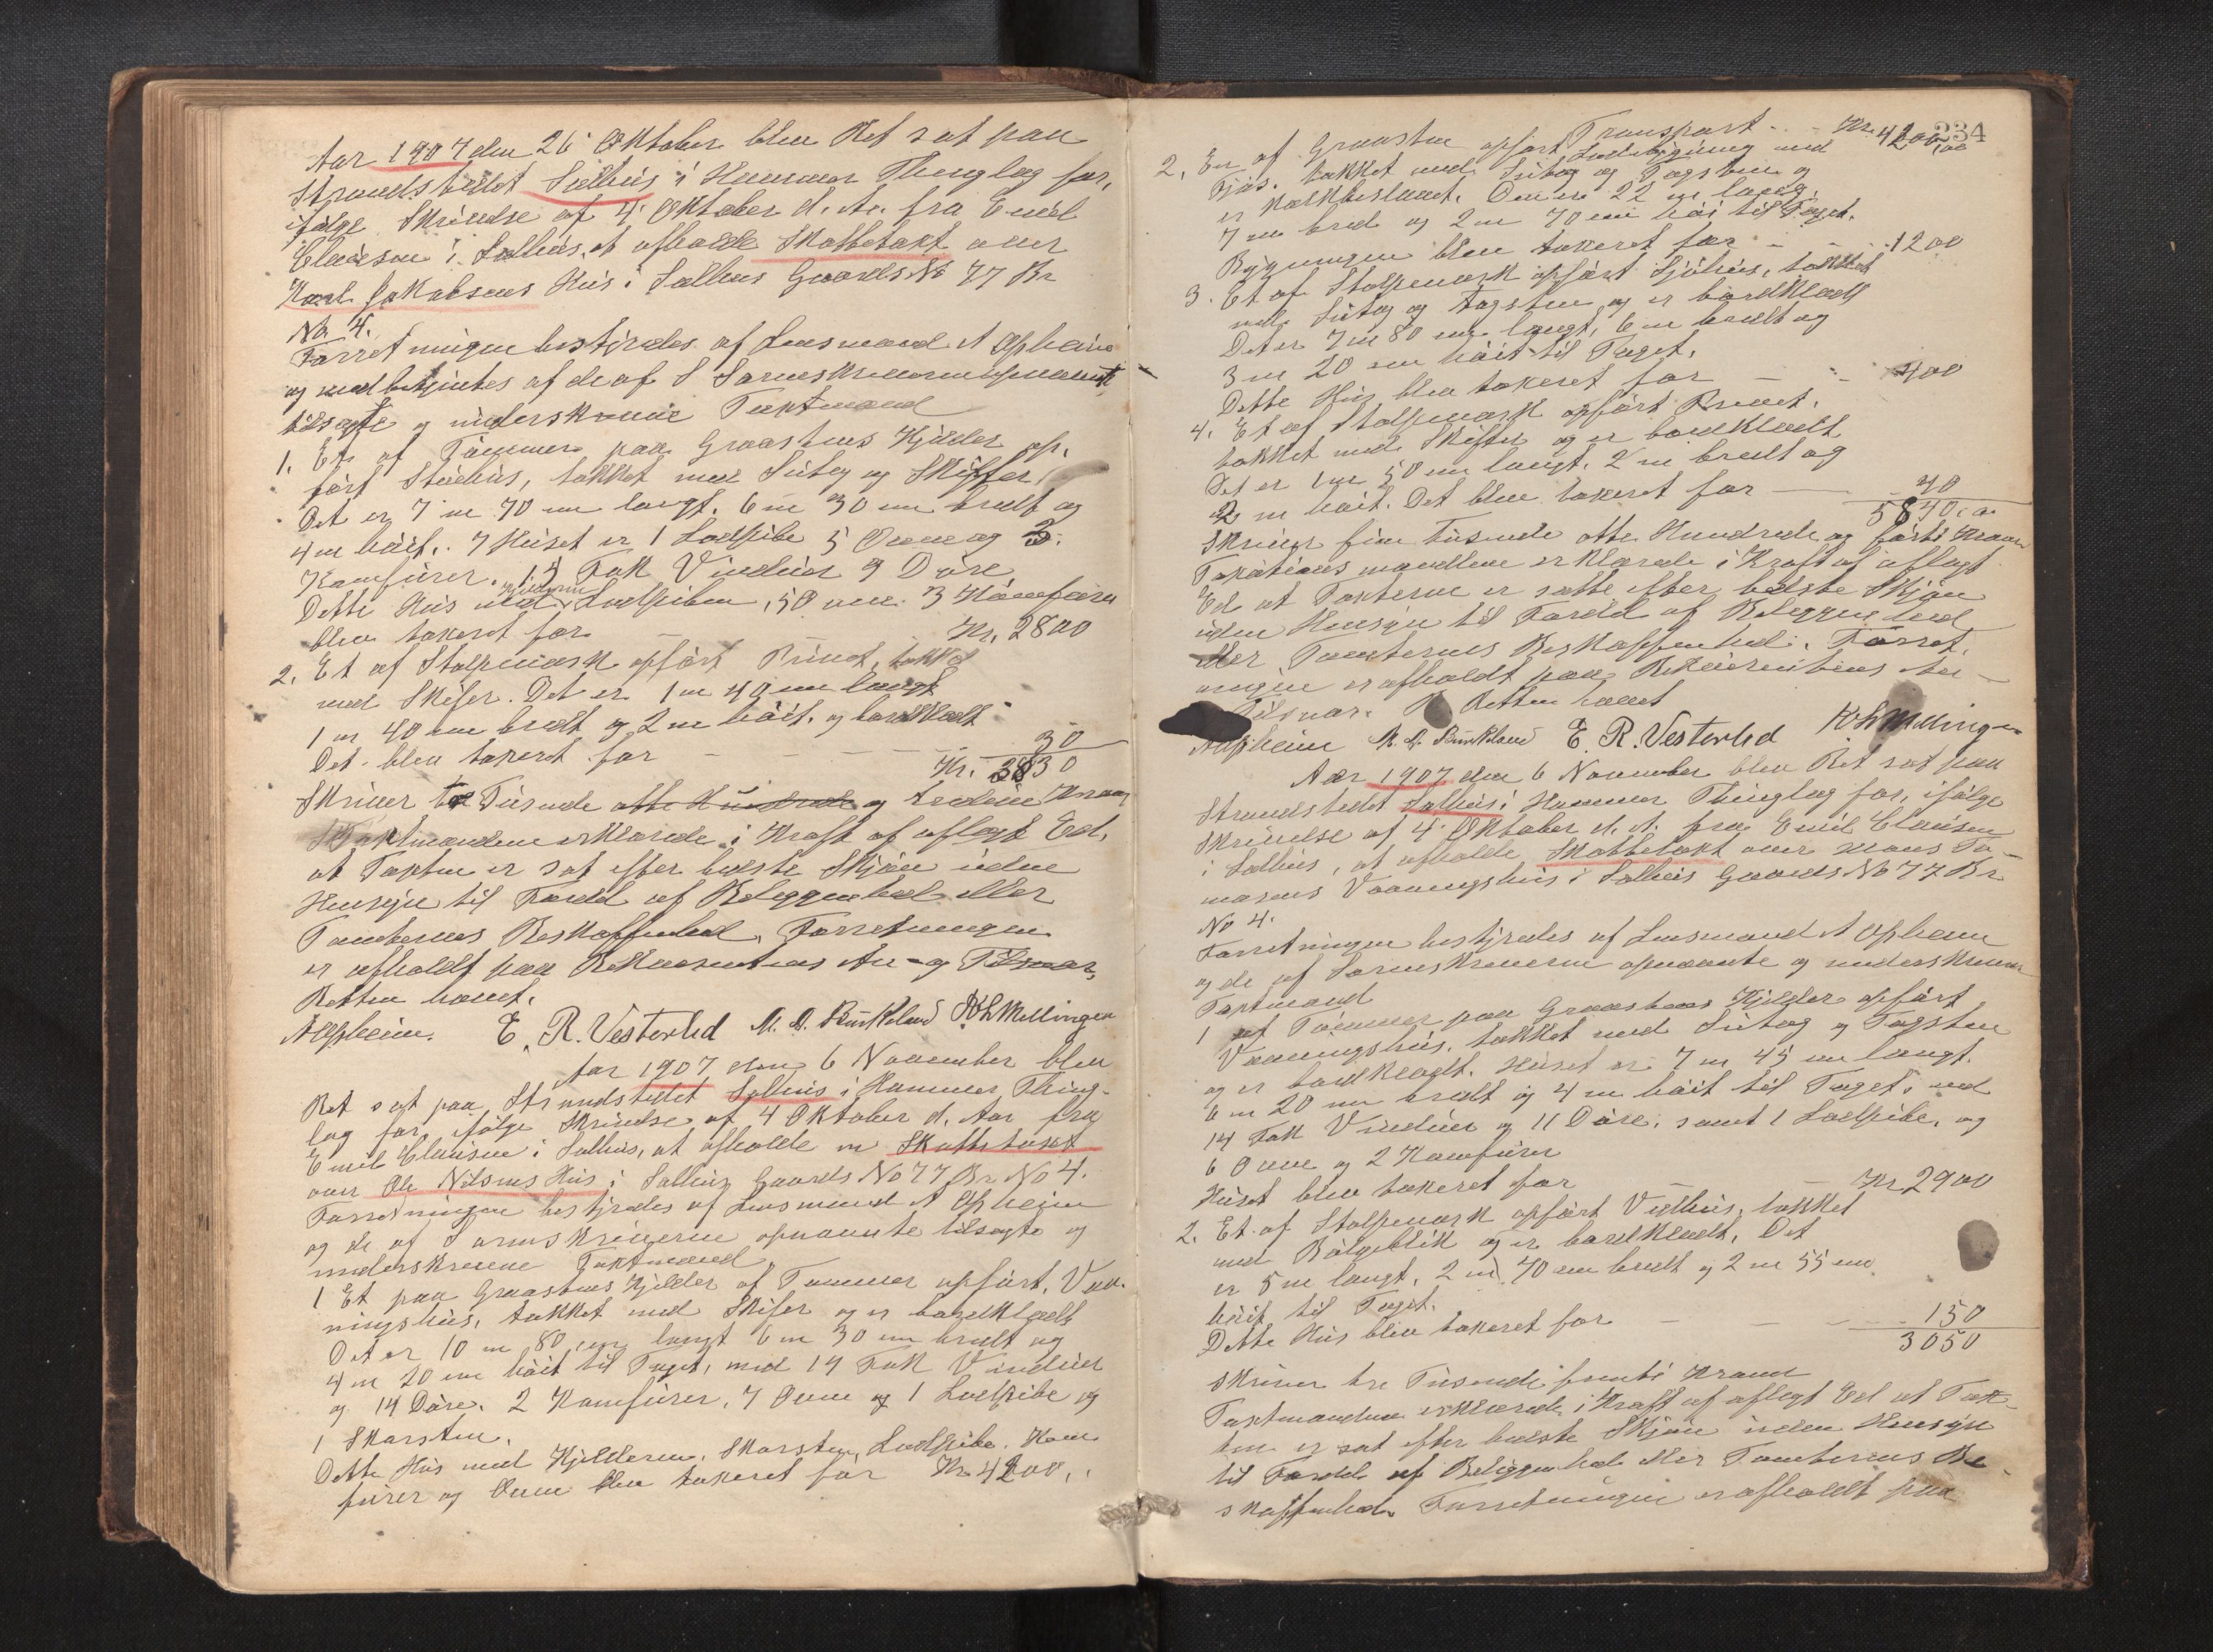 Aar 1907 den 26 Oktober blev Ret sat paa
Strandstedet Salhus i Hammer Thinglag for,
ifølge Skrivelse af 4. Oktober d. A. fra Emil
Clausen i Salhus, at afholde Skattetakt over
Karl Jakobsens Hus i Salhus Gaards No 77 Br
No 4.
Forretningen bestyredes af Lensmand A Opheim
og medbetjentes af de af S Sorenskriveren opnævnte
tilsagte og underskrevne Taxtmænd
1. Et af Tømmer paa Graastens Kjelder op,
ført Stuehus, tækket med Sutag og Skiffer,
Det er 7 m 70 cm langt. 6 m 30 cm bredt og
4 m høit. I Huset er 1 Lodpibe 5 Ovne og 3.
Komfurer. 15 Fak Vinduer 9 Døre
Dette Hus med Kjelderen Lodpiben, 5 Ovne 3 Komfurer
blev takeret for — Kr. 2800
2. Et af Stolpeværk opført Privet, tækket
med Skifer. Det er 1 m 40 cm langt
1 m 40 cm bredt og 2 m høit. og bordklædt
Det blev takeret for — — — 30
Kr. 2830
Skriver to Tusende otte Hundrede og tredive Kroner
Taktmændene erklærede i Kraft af aflagt Ed.
at Taxten er sat efter bedste Skjøn uden
Hensyn til Fordel af Beliggenhed eller
Tomternes Beskaffenhed. Forretningen
er afholdt paa Rekvirentens An- og Tilsvar,
Retten hævet.
A Opheim. E. R. Vesterlid M. A. Birkeland K H Mellingen
Aar 1907 den 6 November blev
Ret sat paa Strandstedet Salhus i Hammer Thing-
lag for, ifølge Skrivelse af 4 Oktober d. Aar fra
Emil Clausen i Salhus, at afholde en Skattetaxt
over Ole Nilsens Hus i Salhus Gaards No 77 Br. No 4.
Forretningen bestyredes af Lensmand A Opheim
og de af Sorenskriveren opnævnte tilsagte og
underskrevne Taktmænd
1 Et paa Graastens Kjelder af Tømmer opført, Vaa-
ningshus, tækket med Skifer og er bordklædt
Det er 10 m 80 cm langt 6 m 30 cm bredt og
4 m 20 cm høit til Taget, med 19 Fak Vinduer
og 14 Døre. 2 Komfurer, 7 Ovne og 1 Lodpibe og
1 Skorsten.
Dette Hus med Kjelderen, Skorsten, Lodpibe. Kom
furer og Ovne blev takeret for Kr 4200,,
334
Transport - - Kr. 4200,00
2. En af Graasten opført Ladebygning med
Fjøs. tækket med Sutag og Tagsten og
er Kalkbeslaaet. Den er 22 m lang.
7 m bred og 2 m 70 cm høi til Taget.
Bygningen blev takeret for — - 1200
3. Et af Stolpeværk opført Sjøhus, tækket
med Sutag og Tagsten og er bordklædt
Det er 7 m 80 cm langt, 6 m bredt og
3 m 20 cm høit til Taget.
Dette Hus blev takeret for — - 400
4. Et af Stolpeværk opført Privet.
tækket med Skiffer og er bordklædt
Det er 1 m 50 cm langt. 2 m bredt og
2 m høit. Det blev takeret for — 40
5840,00
Skriver fem Tusende otte Hundrede og førti Kroner
Taxationsmændene erklærede i Kraft af aflagt
Ed at Taxterne er satte efter bedste Skjøn
uden Hensyn til Fordel af Beliggenhed
eller Tomternes Beskaffenhed. Forret,
ningen er afholdt paa Rekvirentens An-
Tilsvar. Retten hævet
A Opheim M. A. Birkeland E. R. Vesterlid K H Mellingen
Aar 1907 den 6 November blev Ret sat paa
Strandstedet Salhus i Hammer Thinglag for, ifølge
Skrivelse af 4 Oktober d. A. fra Emil Clausen
i Salhus, at afholde Skattetakt over Mons To-
masens Vaaningshus i Salhus Gaards No 77 Br
No 4.
Forretningen bestyredes af Lensmand A Opheim
og de af Sorenskriveren opnævnte og underskrevne
Taxtmænd
1 et Tømmer paa Graastens Kjelder opført
Vaaningshus, tækket med Sutag og Tagsten
og er bordklædt. Huset er 7 m 45 cm langt.
6 m 20 cm bredt og 4 m høit til Taget, med
14 Fak Vinduer og 11 Døre, samt 1 Lodpibe, og
6 Ovne og 2 Komfurer
Huset blev takeret for — — Kr 2900
2. Et af Stolpeværk opført Vedhus, tækket
med Bølgeblik og er bordklædt, Det
er 5 m langt, 2 m 70 cm bredt og 2 m 55 cm
høit til Taget.
Dette Hus blev takeret for — — — 150
3050
Skriver tre Tusende femti Kroner
Taxtmændene erklærede i Kraft af aflagt Ed at Tax-
ten er sat efter bedste Skjøn uden Hensyn
til Fordel af Beliggenhed eller Tomternes Be
skaffenhed. Forretningen er afholdt paa